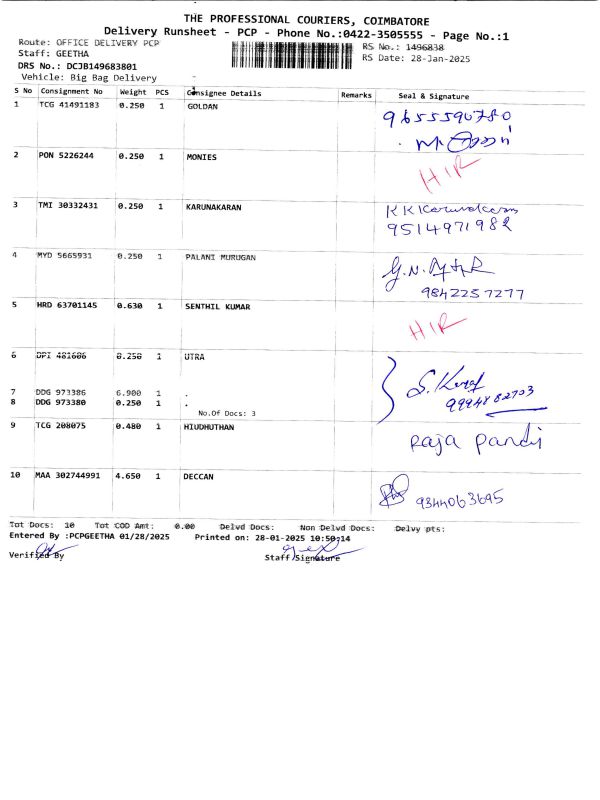 THE PROFESSIONAL COURIERS, COIMBATORE
Delivery Runsheet - PCP - Phone No.:0422-3505555 - Page No.:1
Route: OFFICE DELIVERY PCP
RS No.: 1496838
Staff: GEETHA
RS Date: 28-Jan-2025
DRS No.: DCJB149683801
Vehicle: Big Bag Delivery
S No Consignment No Weight PCS Consignee Details Remarks Seal & Signature
1 TCG 41491183 0.250 1 GOLDAN
2 PON 5226244 0.250 1 MONIES HIR
3 TMI 30332431 0.250 1 KARUNAKARAN KKKarunakaran
9514971982
4 MYD 5665931 0.250 1 PALANI MURUGAN
9842257277
5 HRD 63701145 0.630 1 SENTHIL KUMAR HIR
6 DPI 481686 0.250 1 UTRA
7 DDG 973386 6.900 1 .
8 DDG 973380 0.250 1 .
No.Of Docs: 3
9 TCG 208075 0.480 1 HIUDHUTHAN Raja Pandi
10 MAA 302744991 4.650 1 DECCAN
9344063695
Tot Docs: 10 Tot COD Amt: 0.00 Delvd Docs: Non Delvd Docs: Delvy pts:
Entered By :PCPGEETHA 01/28/2025 Printed on: 28-01-2025 10:50:14
Verified By Staff Signature